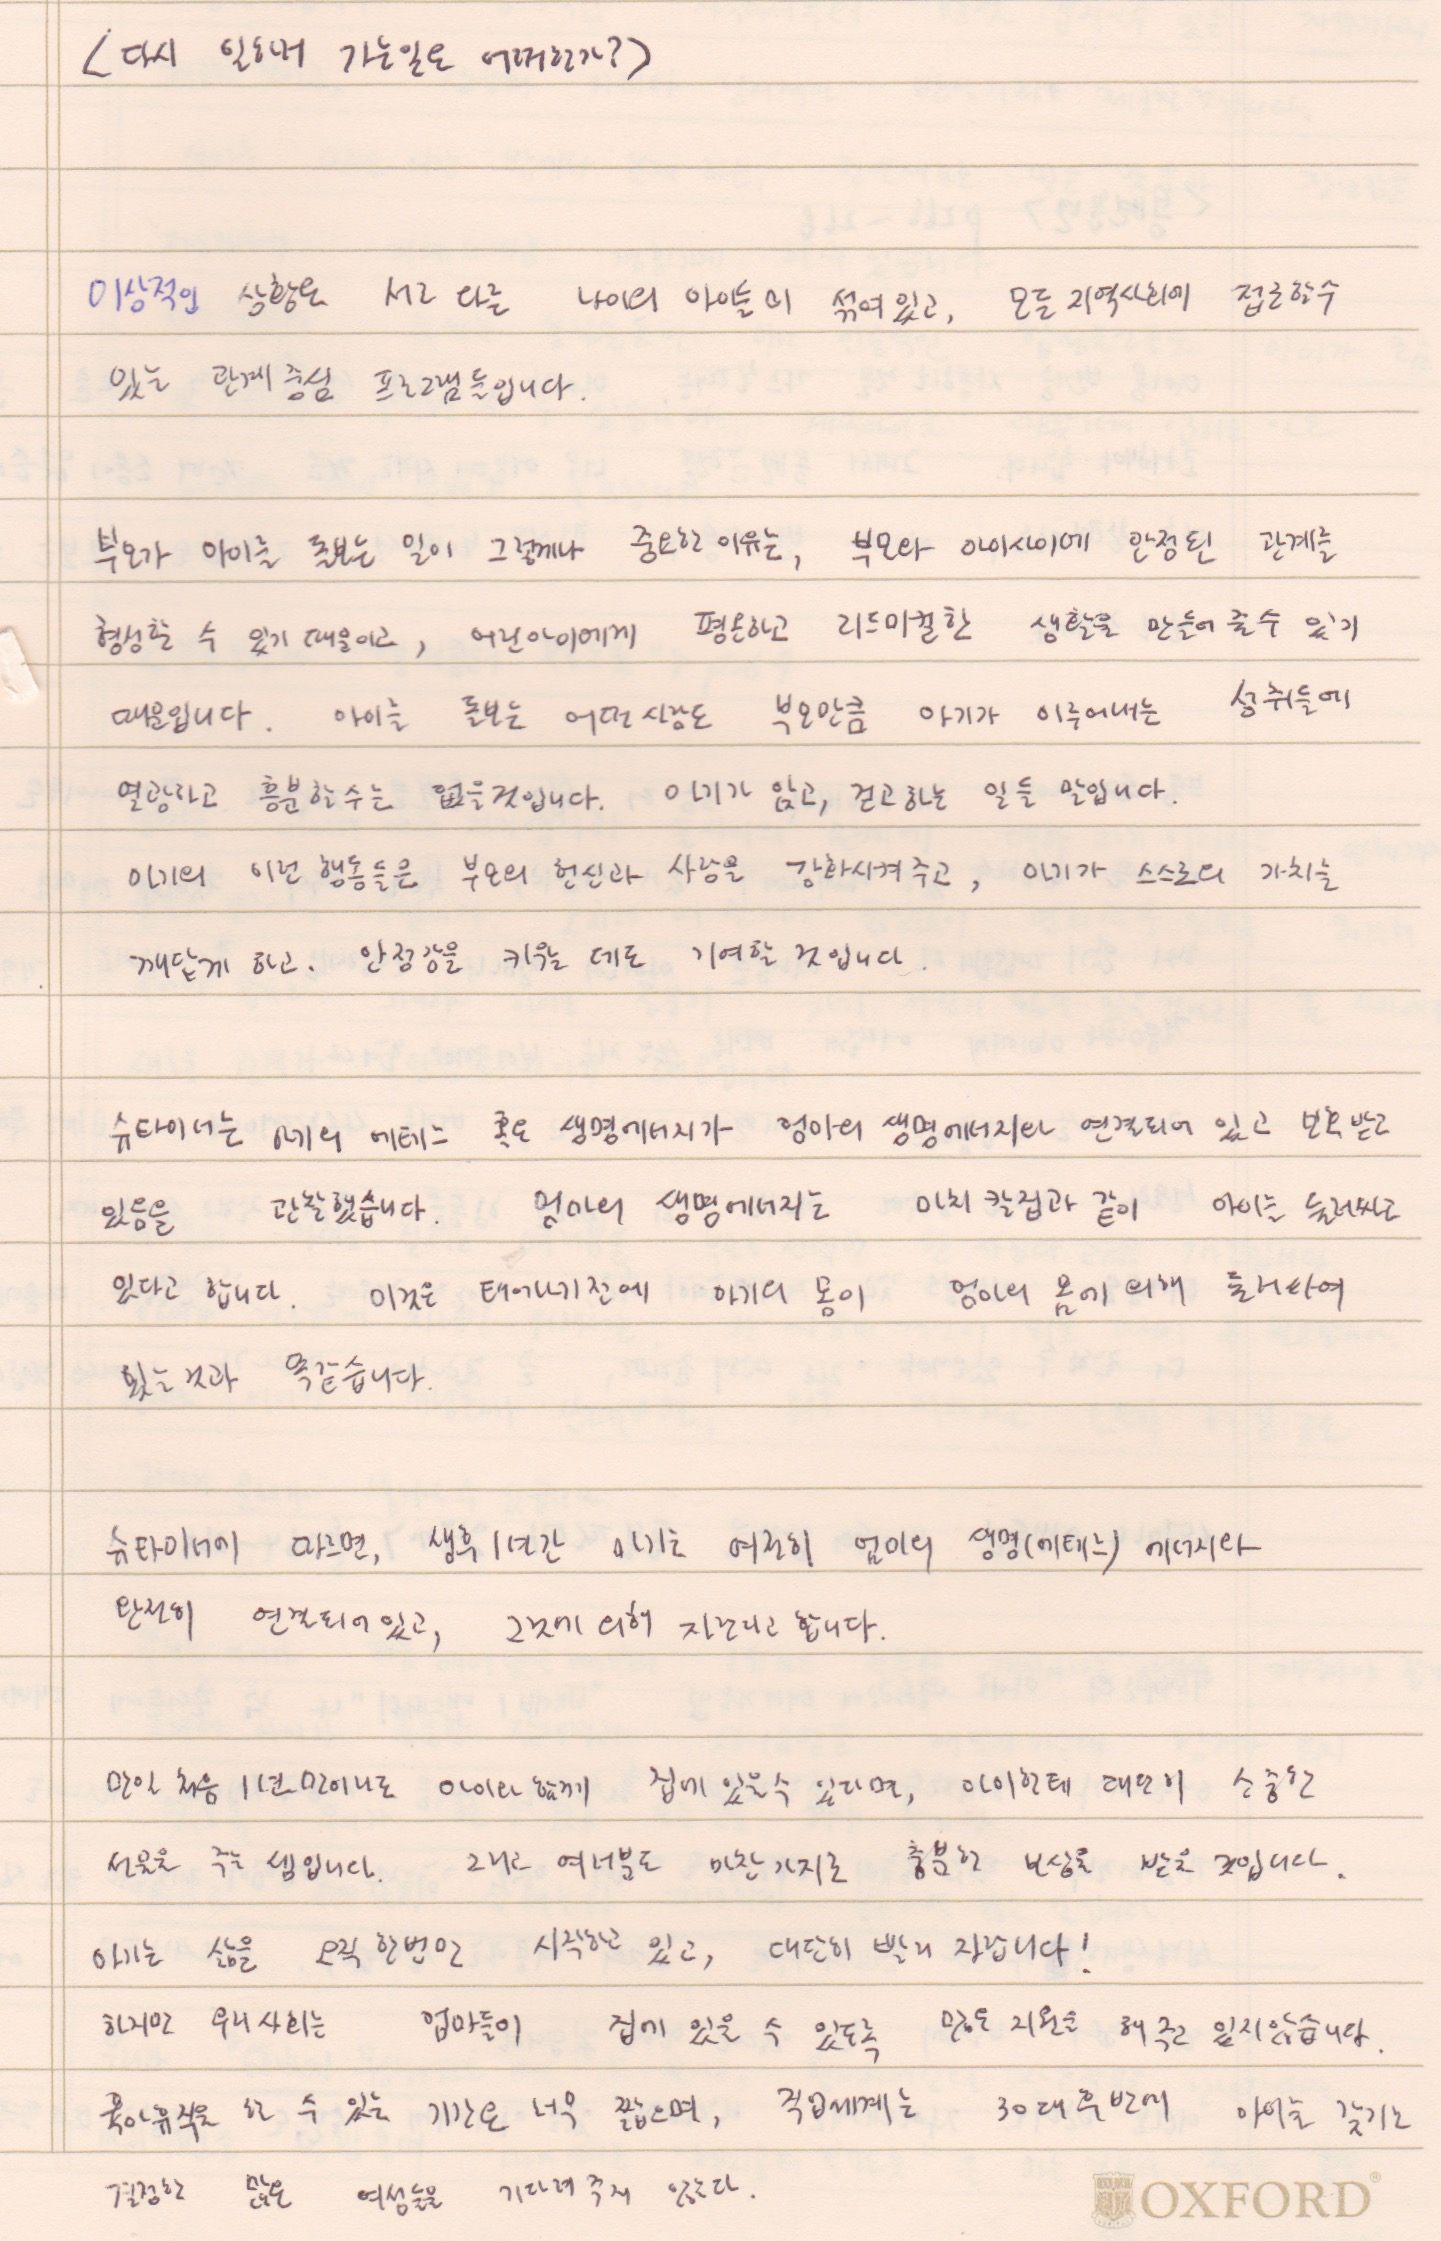 <다시 일하러 가는일은 어떠한가?>
이상적인 상황은 서로 다른 나이의 아이들이 섞여있고, 모든 지역사회에 접근할수
있는 관계중심 프로그램들입니다.
부모가 아이를 돌보는 일이 그렇게나 중요한 이유는, 부모와 아이사이에 안정된 관계를
형성할 수 있기 때문이고, 어린아이에게 평온하고 리드미컬한 생활을 만들어 줄수 있기
때문입니다. 아이를 돌보는 어떤사람도 부모만큼 아기가 이루어내는 성취들에
열광하고 흥분할수는 없을것입니다. 아기가 앉고, 걷고하는 일들 말입니다.
아기의 이런 행동들은 부모의 헌신과 사랑을 강화시켜주고, 아기가 스스로의 가치를
깨닫게 하고. 안정감을 키우는 데도 기여할 것입니다.
슈타이너는 아기의 에테르 혹은 생명에너지가 엄마의 생명에너지와 연결되어 있고 보호받고
있음을 관찰했습니다. 엄마의 생명에너지는 마치 칼집과 같이 아이를 둘러싸고
있다고 합니다. 이것은 태어나기전에 아기의 몸이 엄마의 몸에 의해 둘러싸여
있는것과 똑같습니다.
슈타이너에 따르면, 생후1년간 아기는 여전히 엄마의 생명(에테르) 에너지와
완전히 연결되어있고, 그것에 의해 자란다고 합니다.
만일 처음 1년만이라도 아이와 함께 집에 있을수 있다면, 아이한테 대단히 소중한
선물을 주는 셈입니다. 그리고 여러분도 마찬가지로 충분한 보상을 받을 것입니다.
아기는 삶을 오직 한번만 시작하고 있고, 대단히 빨리 자랍니다!
하지만 우리사회는 엄마들이 집에 있을 수 있도록 많은 지원을 해주고 있지않습니다.
육아휴직을 할 수 있는 기간은 너무 짧으며, 직업세계는 30대후반에 아이를 갖기로
결정한 많은 여성들을 기다려주지 않는다.
OXFORD®